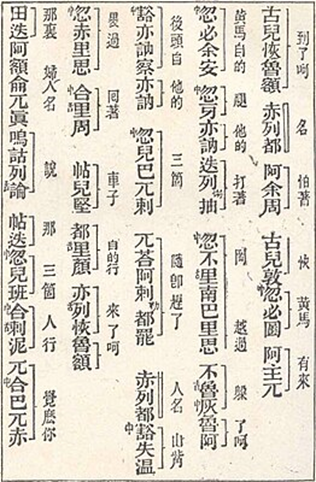 到了呵 名 怕著 快 黃馬 有來
古兒恢魯額 赤列都 阿余周 古兒敦中忽必圖 阿主兀
黃馬自的 腿 他的 打著 岡 越過 躱了呵
中忽必余安 中忽牙亦訥 迭列抽 中忽不里南巴里思 不魯灰魯阿
後頭自 他的 三箇 隨即趕了 人名 山觜
中豁亦訥察亦訥 中忽兒巴兀剌 兀荅阿剌都罷 赤列都中豁失温
過 囘著 車子 自的行 來了呵
中忽赤里思 中合里周 帖兒堅 都里顏 亦列恢魯額
那裏 婦人名 說 那 三箇人行 覺麽你
田迭阿額侖兀眞 嗚詁列論 帖迭中忽兒班中合剌泥 兀中合巴兀赤